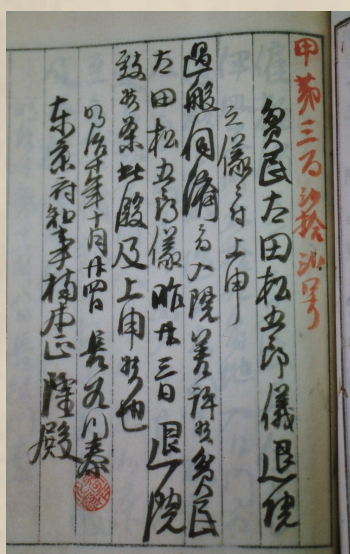 甲第三百弐拾弐号
貧民太田松五郎儀退院
之儀ニ付上申
過般伺済之入院差許候貧民
太田松五郎儀昨廿三日退院
致候条此段及上申候也
明治十年十月廿四日 長谷川泰
東京府知事楠本正隆殿